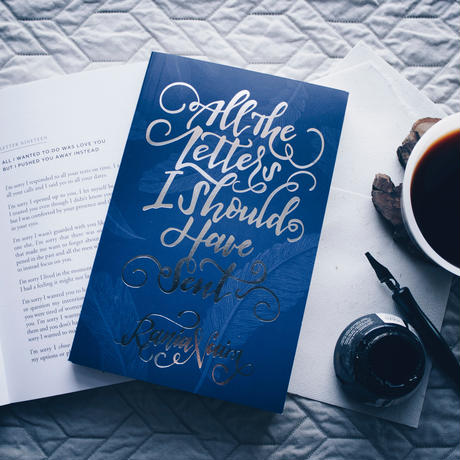 LETTER NINETEEN
ALL I WANTED TO DO WAS LOVE YOU
BUT I PUSHED YOU AWAY INSTEAD
I'm sorry I responded to all your texts on time. I
all your calls and I said yes to all your dates.
I'm sorry I opened up to you. I let myself
I trusted you even though I didn't know you
but I was comforted by your presence and
in your eyes.
I'm sorry I wasn't guarded with you like
one else. I'm sorry that there was
that made me want to forget about
pened in the past and all the men
to instead focus on you.
I'm sorry I lived in the moment
I had a feeling it might not be
I'm sorry I wanted you to
or expected you to
you were tired of
them and you don't
I'm sorry I wanted
much to
I'm sorry I chose
my options or
All the
Letters
I Should
Have
Sent
Rania Naim